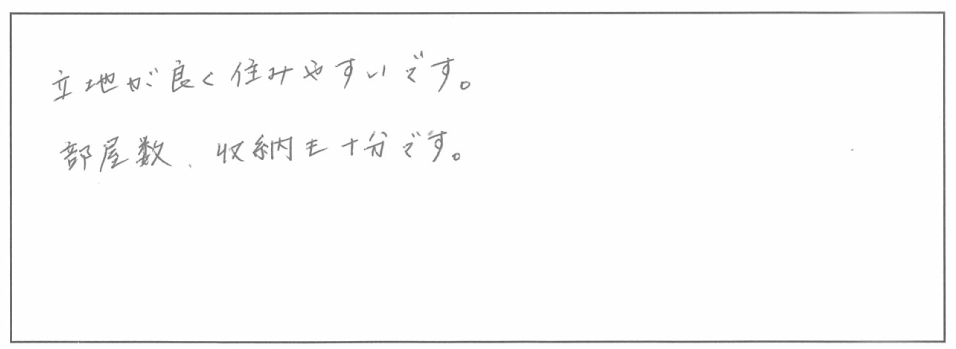 立地が良く住みやすいです。
部屋数、収納も十分です。